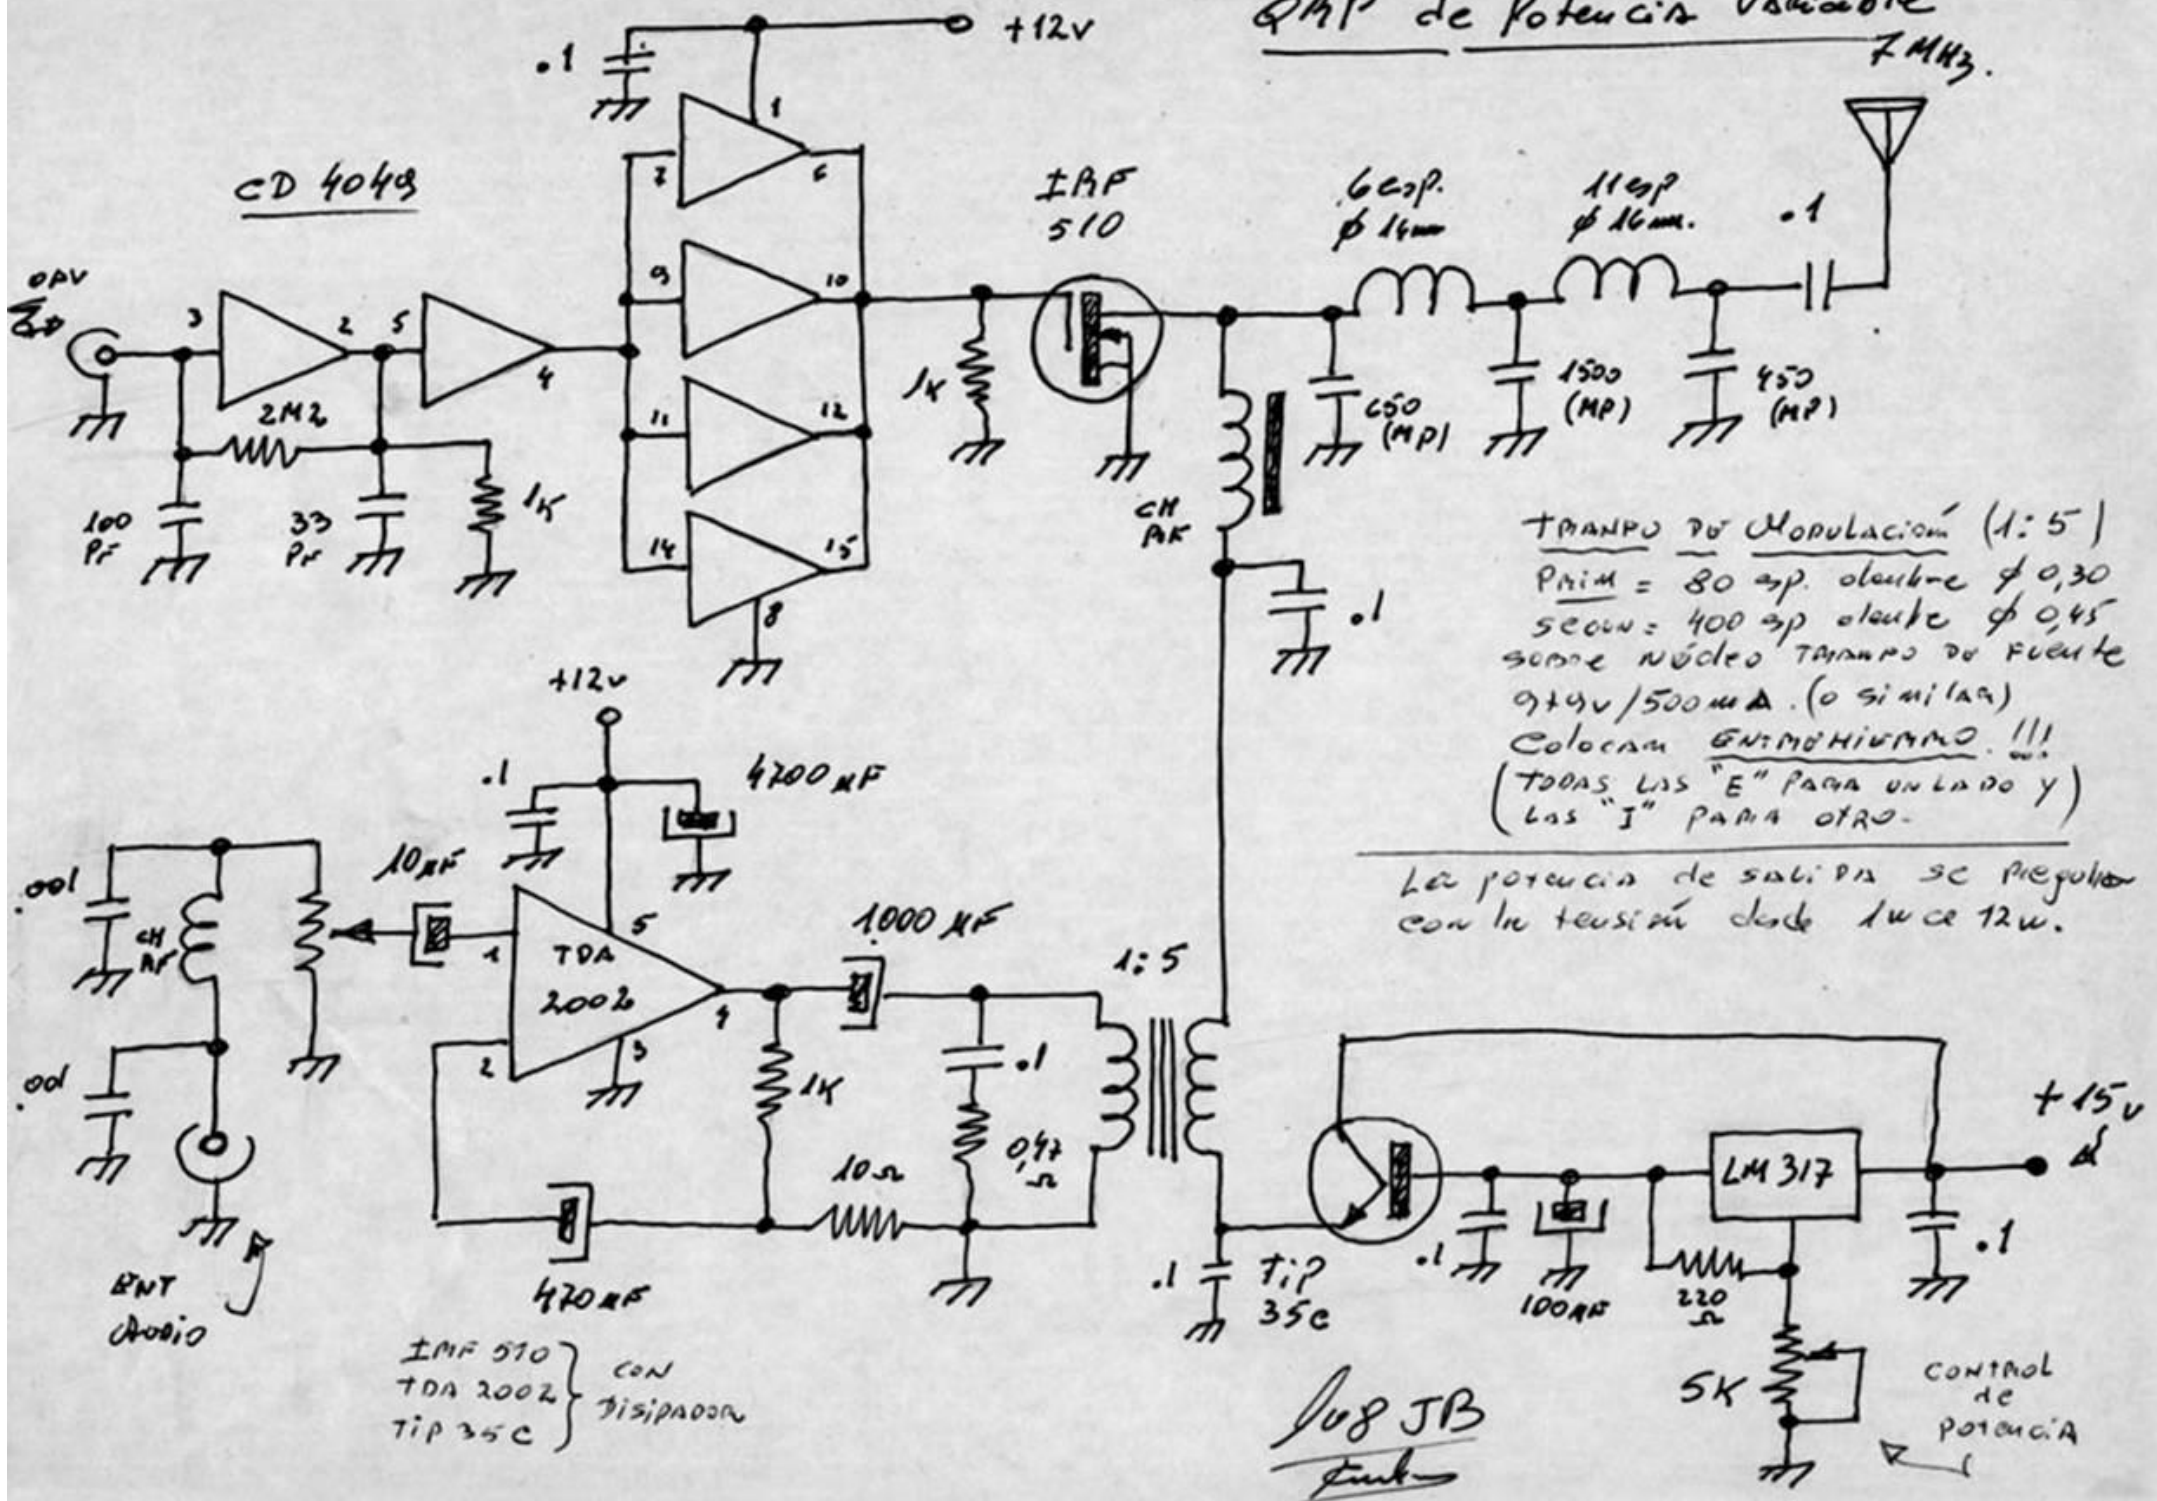 QRP de Potencia Variable
7 MHz.
+12v
.1
1
7
6
CD 4049
9
10
11
12
14
15
8
3
2
5
4
2M2
100
PF
33
PF
1K
1K
IRF
510
6 esp.
φ 14mm
11 esp
φ 16mm.
.1
650
(MP)
1500
(MP)
450
(MP)
CH
RF
.1
TRANFO DE MODULACIÓN (1:5)
PRIM = 80 esp. alambre φ 0,30
SECUN = 400 esp alambre φ 0,45
sobre Núcleo TRANFO DE Fuente
9+9v/500mA. (o similar)
Colocar ENTREHIERRO. !!!
(TODAS LAS "E" PARA UN LADO Y
LAS "I" PARA OTRO.)
La potencia de salida se regula
con la tensión desde 1w a 12w.
+12v
.1
4700 µF
.001
CH
RF
10µF
1
TDA
2002
5
4
2
3
1000 µF
1:5
.001
1K
.1
0,47
Ω
10Ω
470µF
ENT
AUDIO
IRF 510
TDA 2002
TIP 35C
CON
DISIPADOR
.1
TIP
35C
.1
100µF
LM 317
220
Ω
+15v
.1
5K
CONTROL
de
POTENCIA
lu8 JB